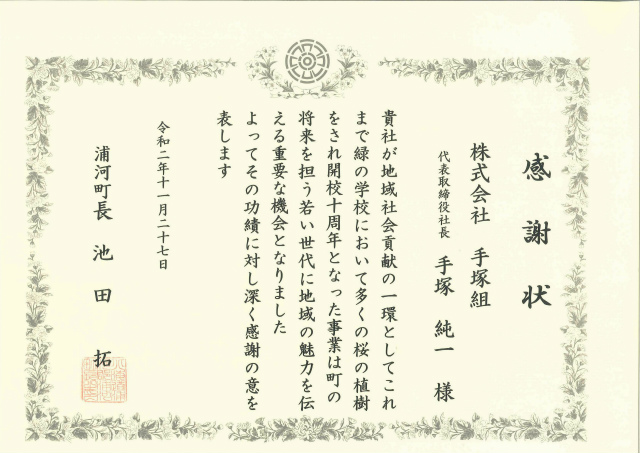 感謝状
株式会社 手塚組
代表取締役社長 手塚 純一 様
貴社が地域社会貢献の一環としてこれ
まで緑の学校において多くの桜の植樹
をされ開校十周年となった事業は町の
将来を担う若い世代に地域の魅力を伝
える重要な機会となりました
よってその功績に対し深く感謝の意を
表します
令和二年十一月二十七日
浦河町長 池田 拓